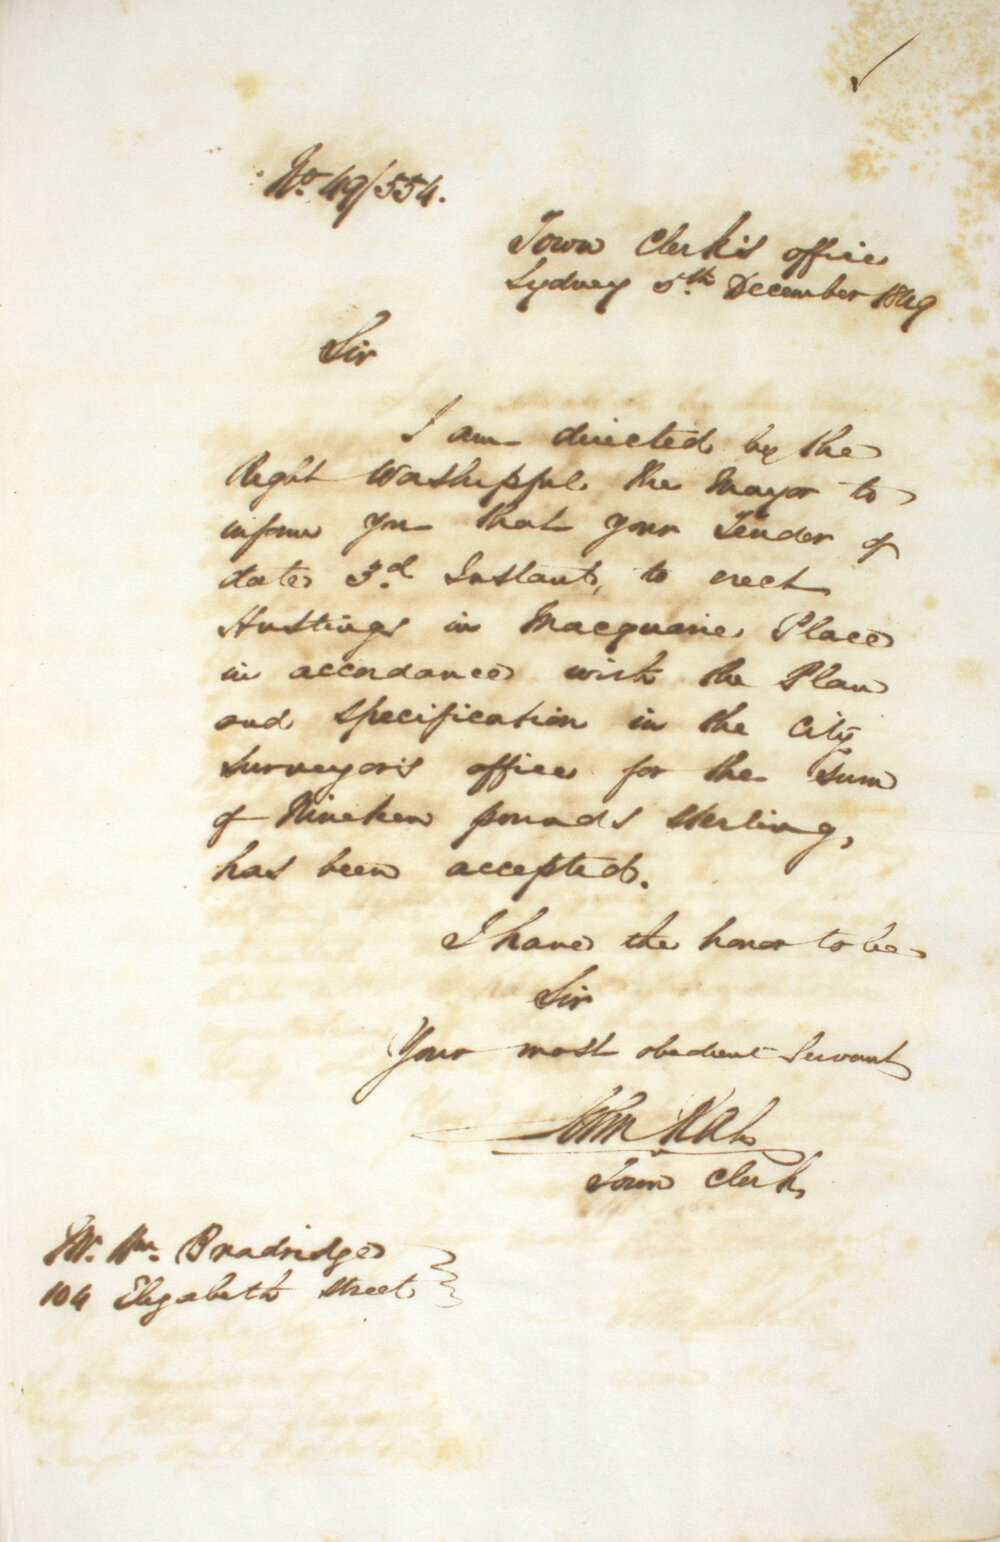 No. 49/554.
Town Clerk's office
Sydney 5th December 1849
Sir
I am directed by the
Right Worshipful the Mayor to
inform you that your Tender of
date 3d Instant, to erect
Hustings in Macquarie Place
in accordance with the Plan
and Specification in the City
Surveyor's office for the Sum
of Nineteen pounds Sterling,
has been accepted.
I have the honor to be
Sir
Your most obedient Servant
John Rae
Town Clerk
Mr. Wm. Bradridge
104 Elizabeth Street